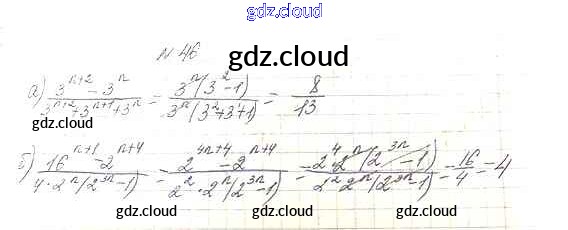 gdz.cloud
N 46
gdz.cloud
а) (3^(n+2) - 3^n)/(3^(n+2) + 3^(n+1) + 3^n) = 3^n(3^2 - 1)/(3^n(3^2 + 3 + 1)) = 8/13
gdz.cloud gdz.cloud
б) (16^(n+1) - 2^(n+4))/(4 · 2^n(2^(3n) - 1)) = (2^(4n+4) - 2^(n+4))/(2^2 · 2^n(2^(3n) - 1)) = 2^4 · 2^n(2^(3n) - 1)/(2^2 · 2^n(2^(3n) - 1)) = 16/4 = 4
gdz.cloud gdz.cloud gdz.cloud